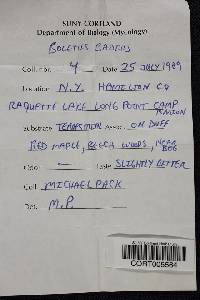 SUNY CORTLAND
Department of Biology (Mycology)
BOLETUS BADIUS
Coll. no. 4 Date 25 JULY 1989
Location N.Y. HAMILTON CO
RAQUETTE LAKE LONG POINT CAMP
Substrate Assoc. ON DUFF
RED MAPLE, BEECH WOODS, NEAR BOG
Odor — Taste SLIGHTLY BITTER
Coll. MICHAEL PACK
Det. M.P.
CORT005564